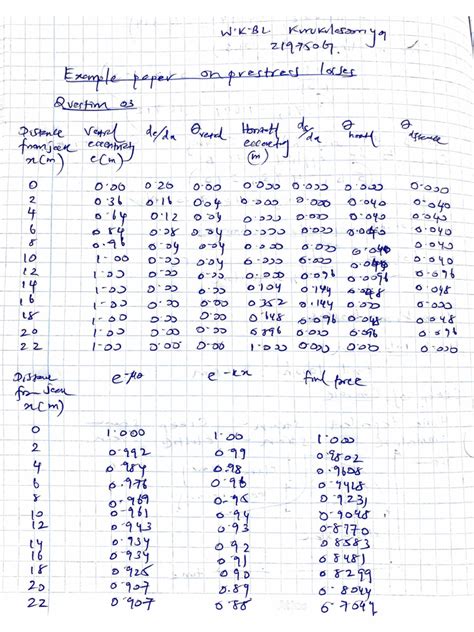 W.K.B.L Kurukulasooriya
Example paper on prestress losses
Question 03
Distance from jack x(m) Vertical eccentricity e(m) de/dx θ vertical Horizontal eccentricity (m) de/dx θ
0 0.00 0.20 0.00 0.000 0.000 0.000 0.000
2 0.36 0.16 0.04 0.000 0.000 0.040 0.040
4 0.64 0.12 0.04 0.000 0.000 0.040 0.040
6 0.84 0.08 0.04 0.000 0.000 0.040 0.040
8 0.96 0.04 0.04 0.000 0.000 0.040
10 1.00 0.00 0.000 0.040
12 1.00 0.00 0.00 0.096 0.096
14 1.00 0.00 0.00 0.104 0.144 0.048
16 1.00 0.00 0.00 0.352 0.144 0.000
18 1.00 0.00 0.00 0.648 0.096 0.048 0.048
20 1.00 0.00 0.00 0.896 0.096
22 1.00 0.00 0.00 1.000 0.000 0.000
Distance from jack x(m) e^-μθ e^-kx final force
0 1.000 1.00 1.000
2 0.992 0.99 0.9802
4 0.984 0.98 0.9608
6 0.976 0.96 0.9418
8 0.969 0.95 0.9231
10 0.961 0.94 0.9048
12 0.943 0.93 0.8770
14 0.934 0.92 0.8583
16 0.934 0.91 0.8481
18 0.925 0.90 0.8299
20 0.907 0.89 0.8044
22 0.907 0.88